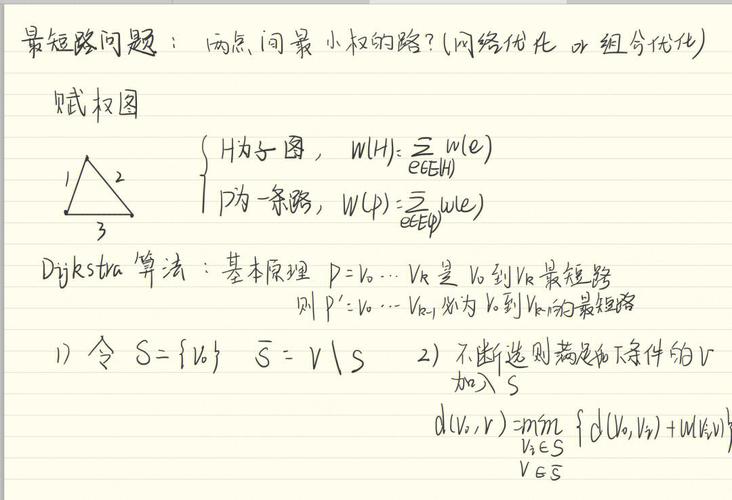 最短路问题： 两点间最小权的路?(网络优化 or 组合优化)
赋权图
H为子图， W(H)=∑_{e∈E(H)} w(e)
P为一条路， W(P)=∑_{e∈E(P)} w(e)
1 2
3
Dijkstra 算法：基本原理 P=V₀…Vₖ 是 V₀到Vₖ最短路
则 P'=V₀…Vₖ₋₁ 必为 V₀到Vₖ₋₁的最短路
1) 令 S={V₀} S̄=V\S
2) 不断选则满足如下条件的V
加入S
d(V₀,V)=min {d(V₀,Vᵢ)+w(Vᵢ,V)}
Vᵢ∈S
V∈S̄